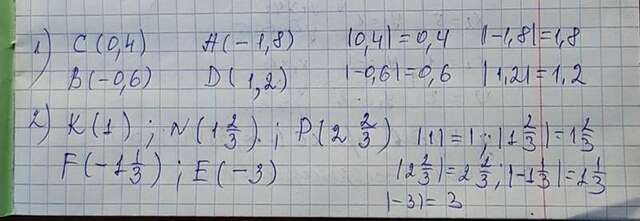 1) C(0,4) A(-1,8) |0,4|=0,4 |-1,8|=1,8
B(-0,6) D(1,2) |-0,6|=0,6 |1,2|=1,2
2) K(1) ; N(1 2/3) ; P(2 2/3) |1|=1 ; |1 2/3|=1 2/3
F(-1 1/3) ; E(-3) |2 2/3|=2 2/3 ; |-1 1/3|=1 1/3
|-3|=3